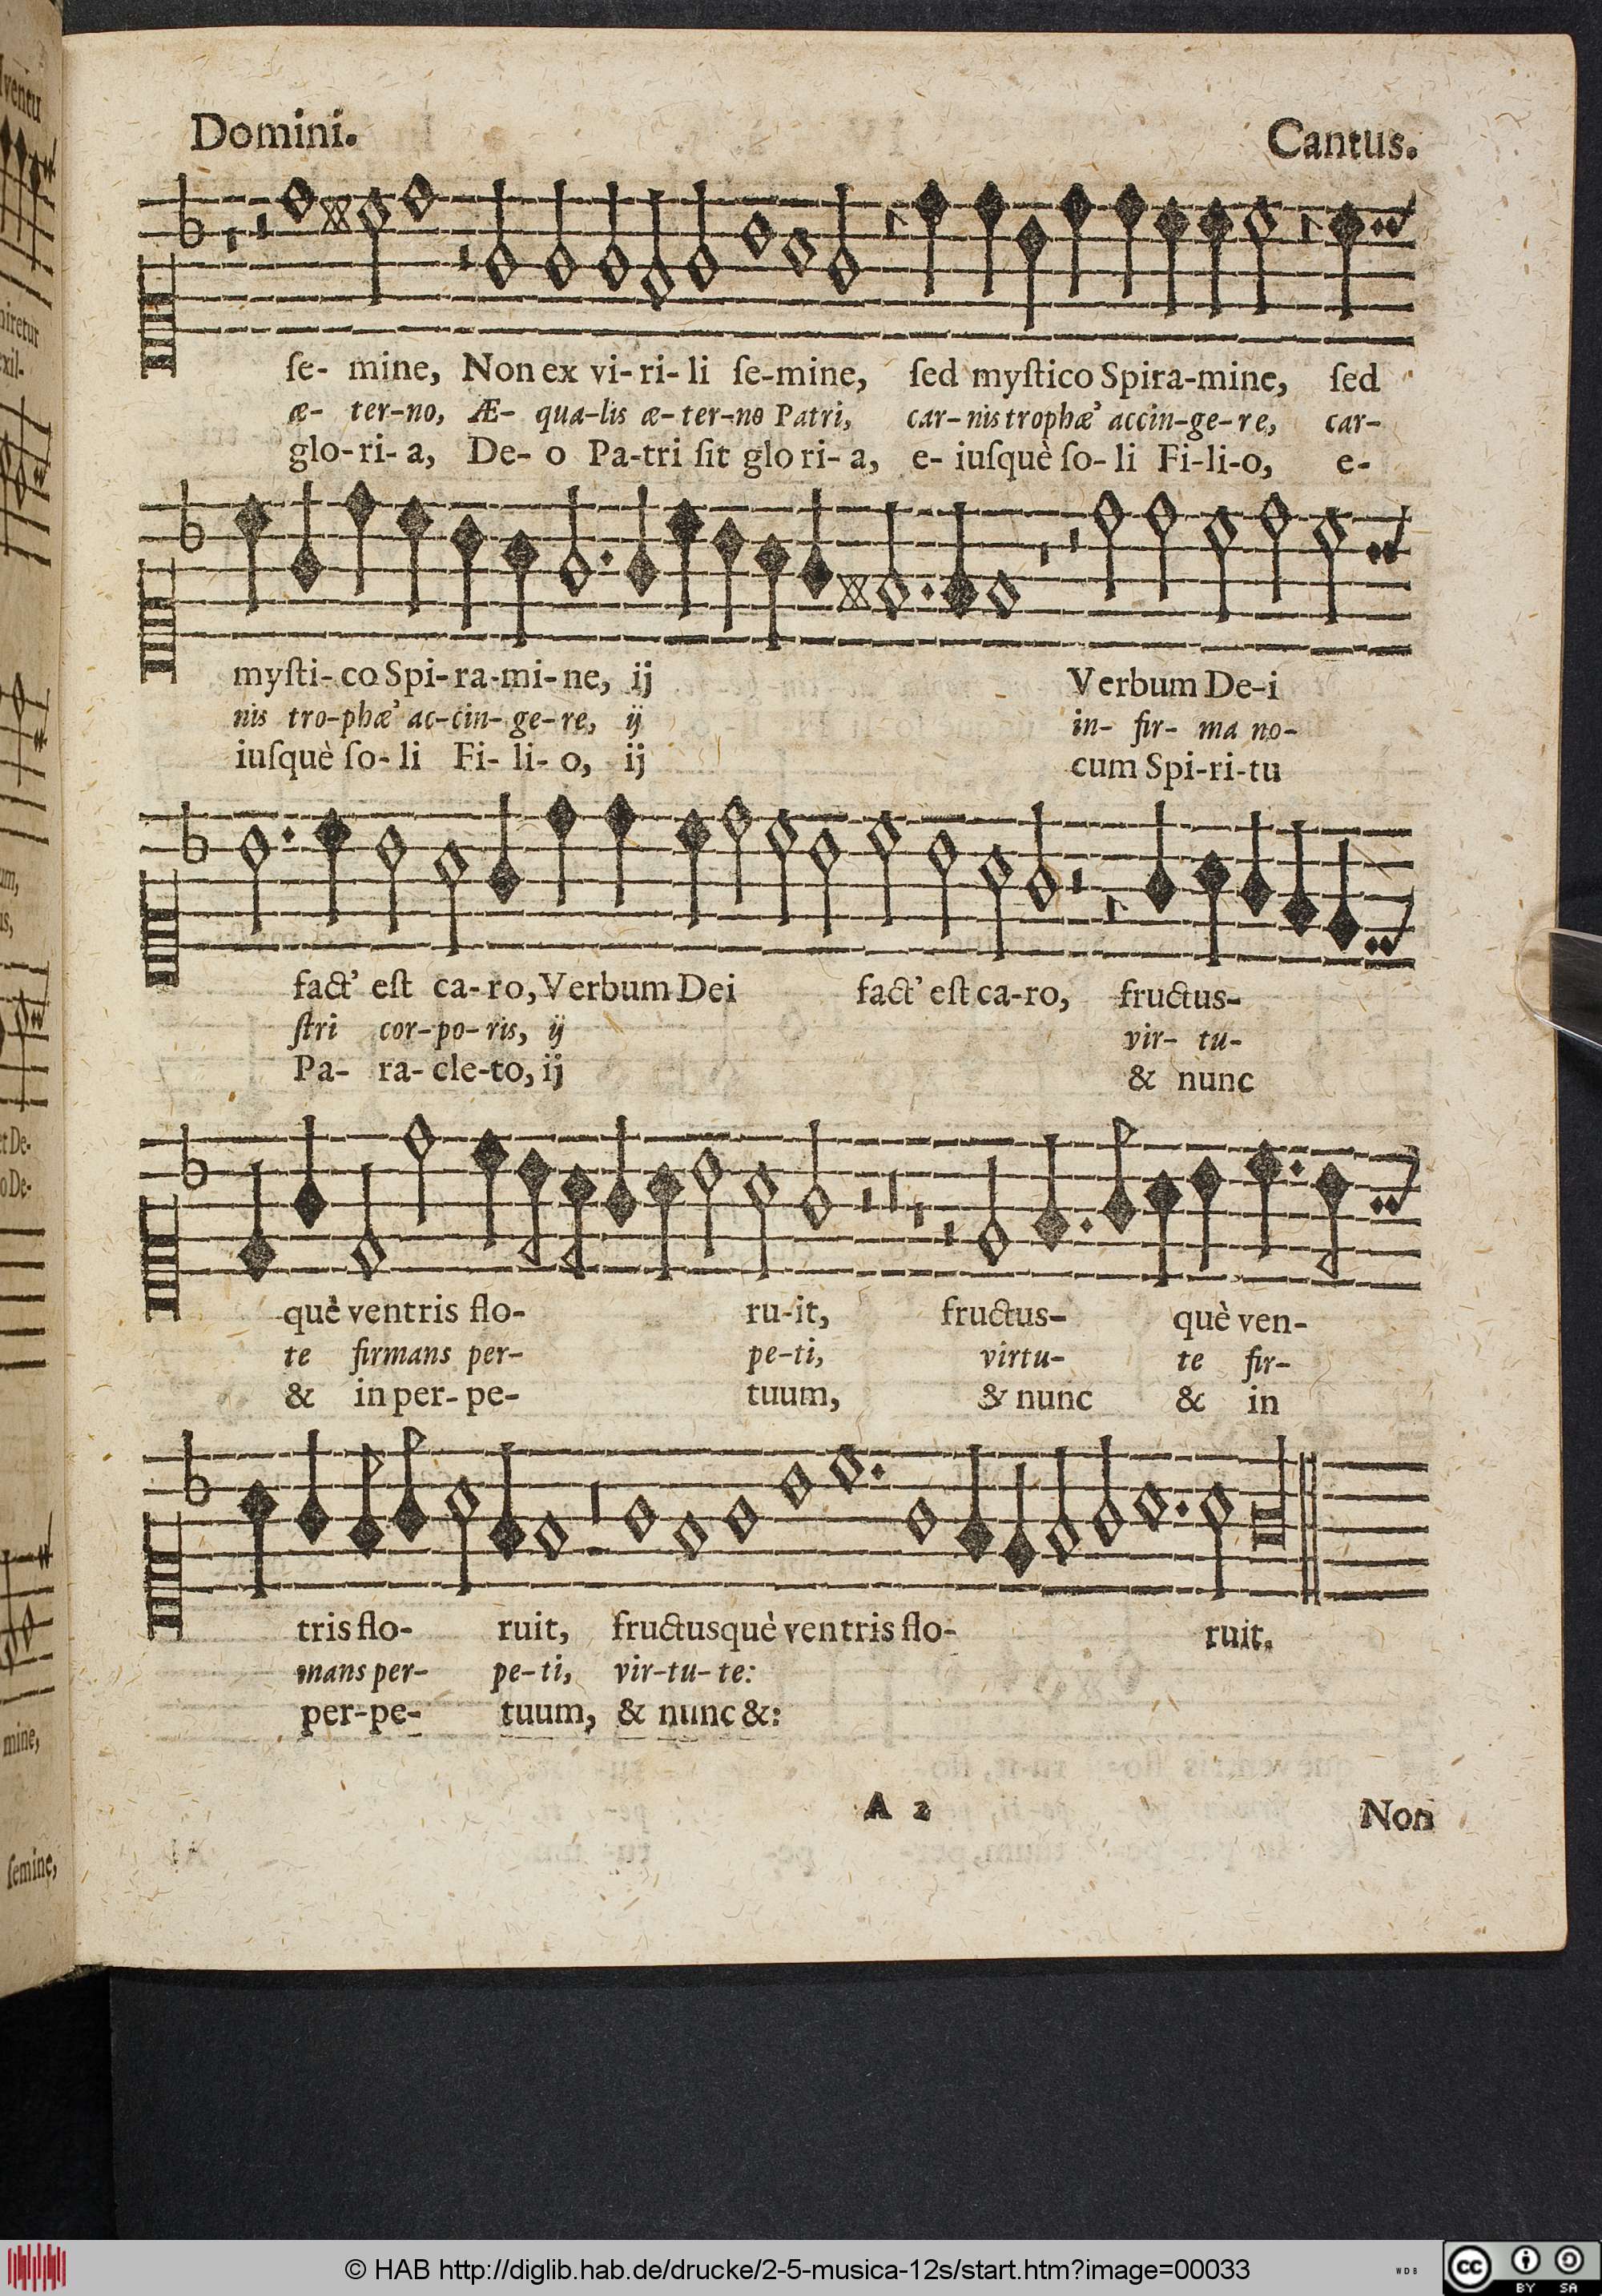 Domini. Cantus.
ſe- mine, Non ex vi- ri- li ſe-mine, ſed myſtico Spira-mine, ſed
æ- ter-no, Æ- qua-lis æ-ter-no Patri, car-nis trophæ' accin-ge-re, car-
glo-ri- a, De- o Pa-tri ſit glo ri- a, e- iuſquè ſo- li Fi-li-o, e-
myſti- co Spi- ra-mi- ne, ij Verbum De-i
nis tro-phæ' ac-cin- ge-re, ij in- fir- ma no-
iuſquè ſo- li Fi- li- o, ij cum Spi-ri-tu
fact' eſt ca- ro, Verbum Dei fact' eſt ca-ro, fructus-
ſtri cor-po-ris, ij vir- tu-
Pa- ra- cle-to, ij & nunc
què ventris flo- ru-it, fructus- què ven-
te firmans per- pe-ti, virtu- te fir-
& in per- pe- tuum, & nunc & in
tris flo- ruit, fructusquè ventris flo- ruit.
mans per- pe-ti, vir-tu-te:
per-pe- tuum, & nunc &:
A 2 Non
© HAB http://diglib.hab.de/drucke/2-5-musica-12s/start.htm?image=00033 WDB cc BY SA